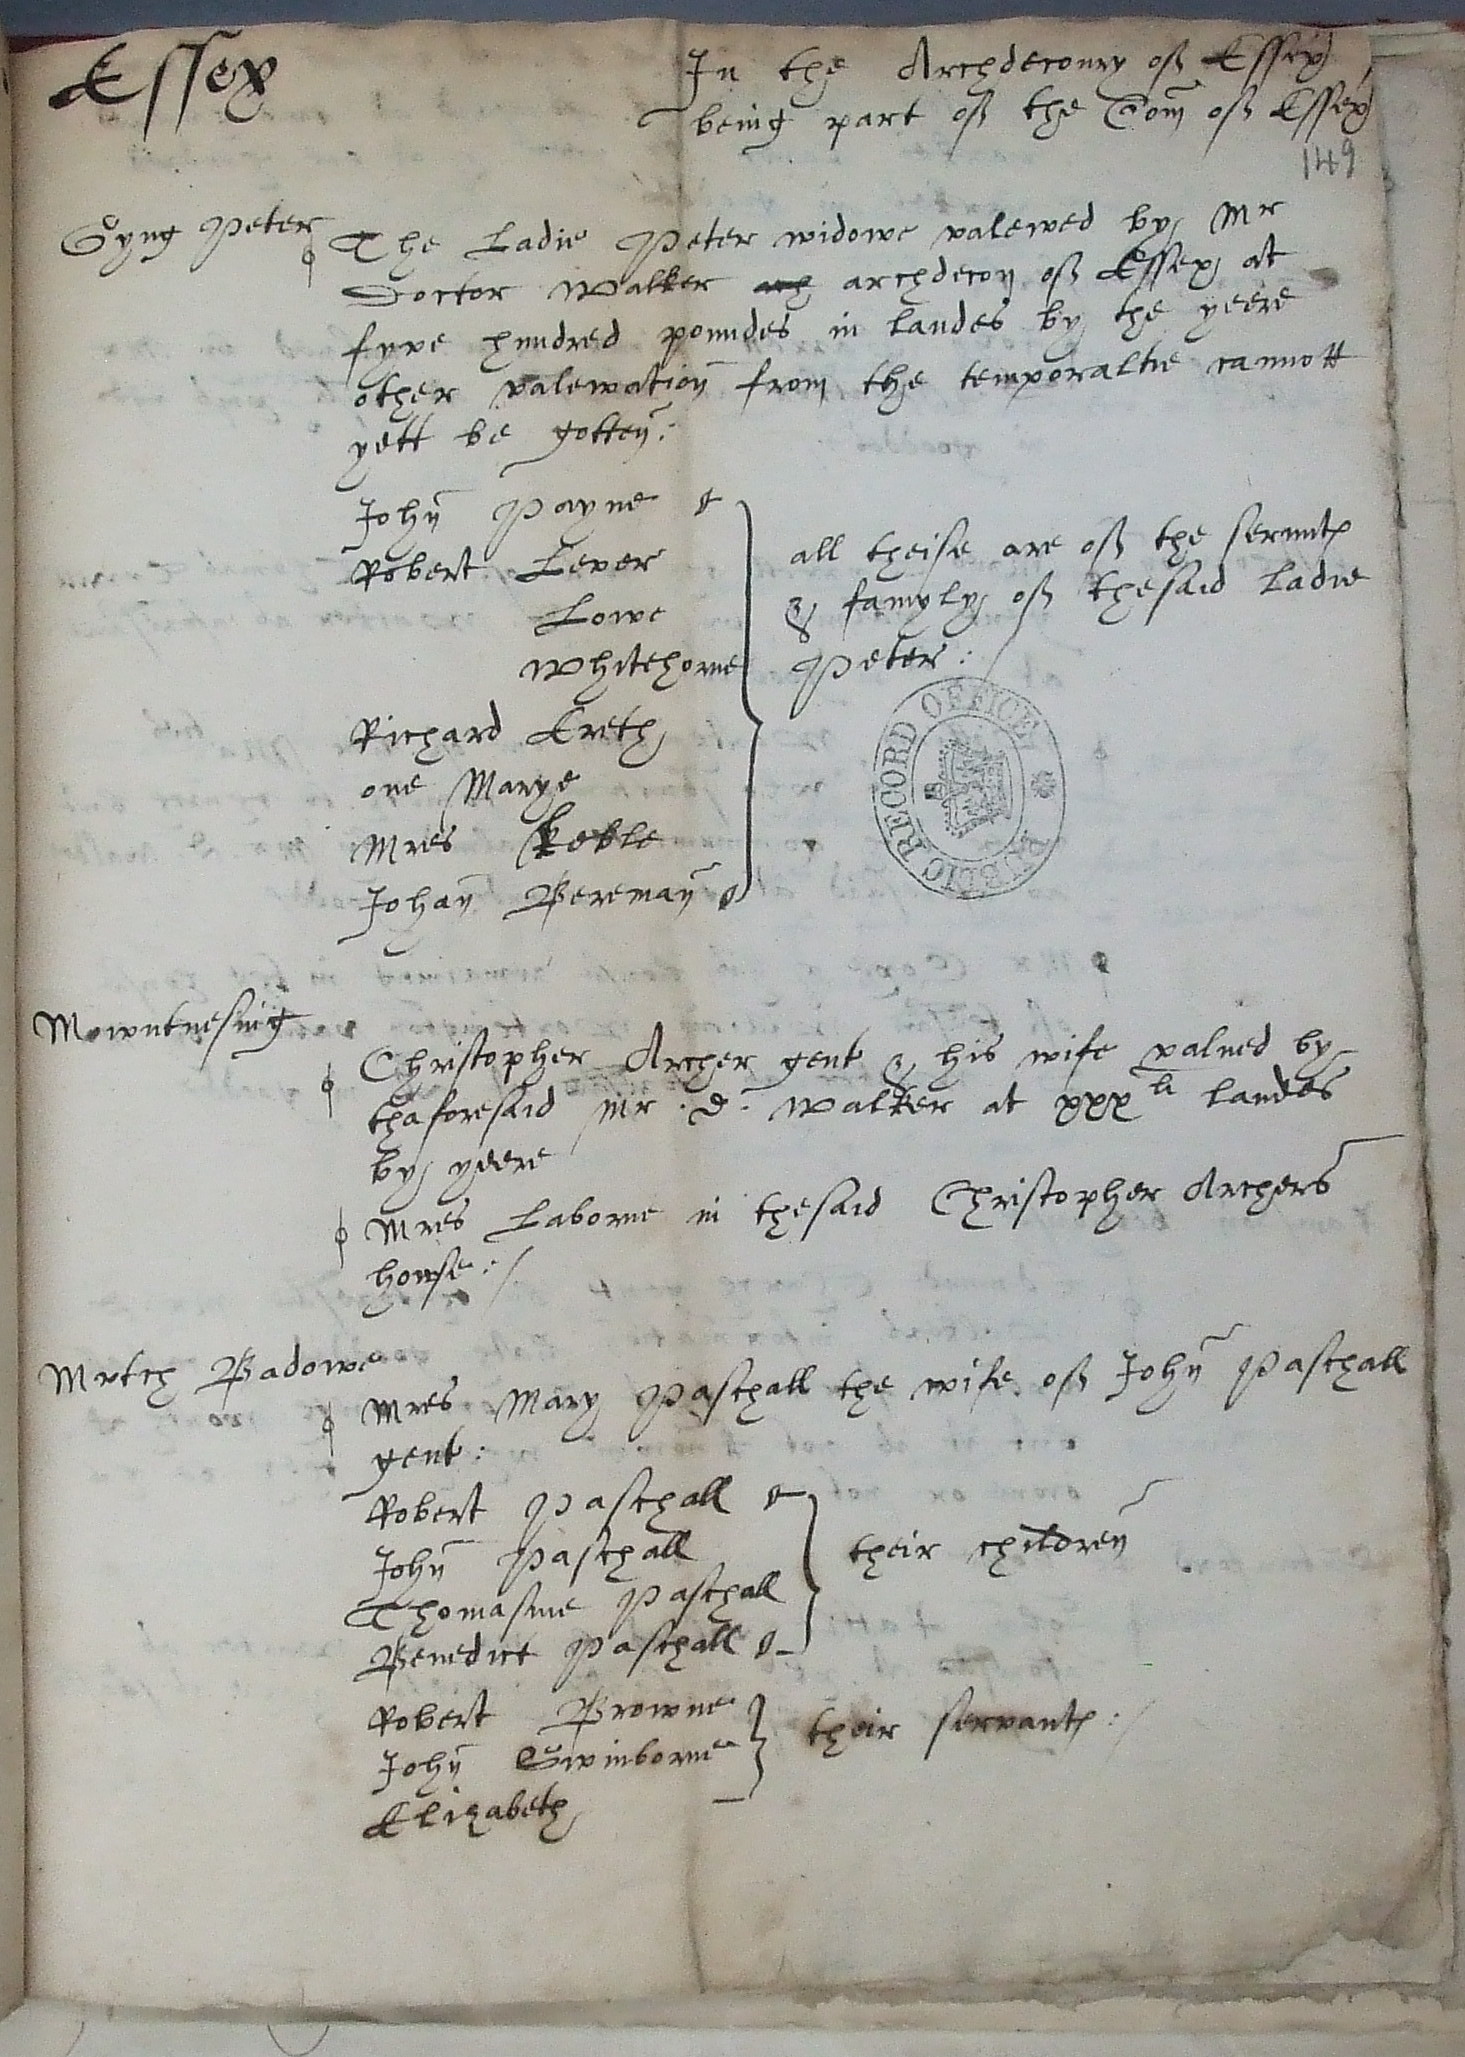 Essex
In the Archdeconry off Essex
being part off the Com off Essex
149
Gyng Peter
The Ladie Peter widowe valewed by Mr
Doctor Walker arch archdecon off Essex at
fyve hundred poundes in landes by the yeere
other valewation from the temporaltie cannott
yett be gotten:
John Payne
Robert Lever
Lowe
Whitehorne
Richard Creth
one Marye
Mres Keble
Johan Bereman
all theise are off the servantes
& famyly off thesaid Ladie
Peter:/
PUBLIC RECORD OFFICE
Mowntnesing
Christopher Archer gent & his wife valued by
thaforesaid Mr. D. Walker at xxx li landes
by yeere
Mres Laborne in thesaid Christopher Archers
howse:/
Mutch Badowe
Mres Mary Paschall the wife off John Paschall
gent:
Robert Paschall
John Paschall
Thomasine Paschall
Benedict Paschall
their children
Robert Browne
John Swinborne
Elizabeth
their servantes:/